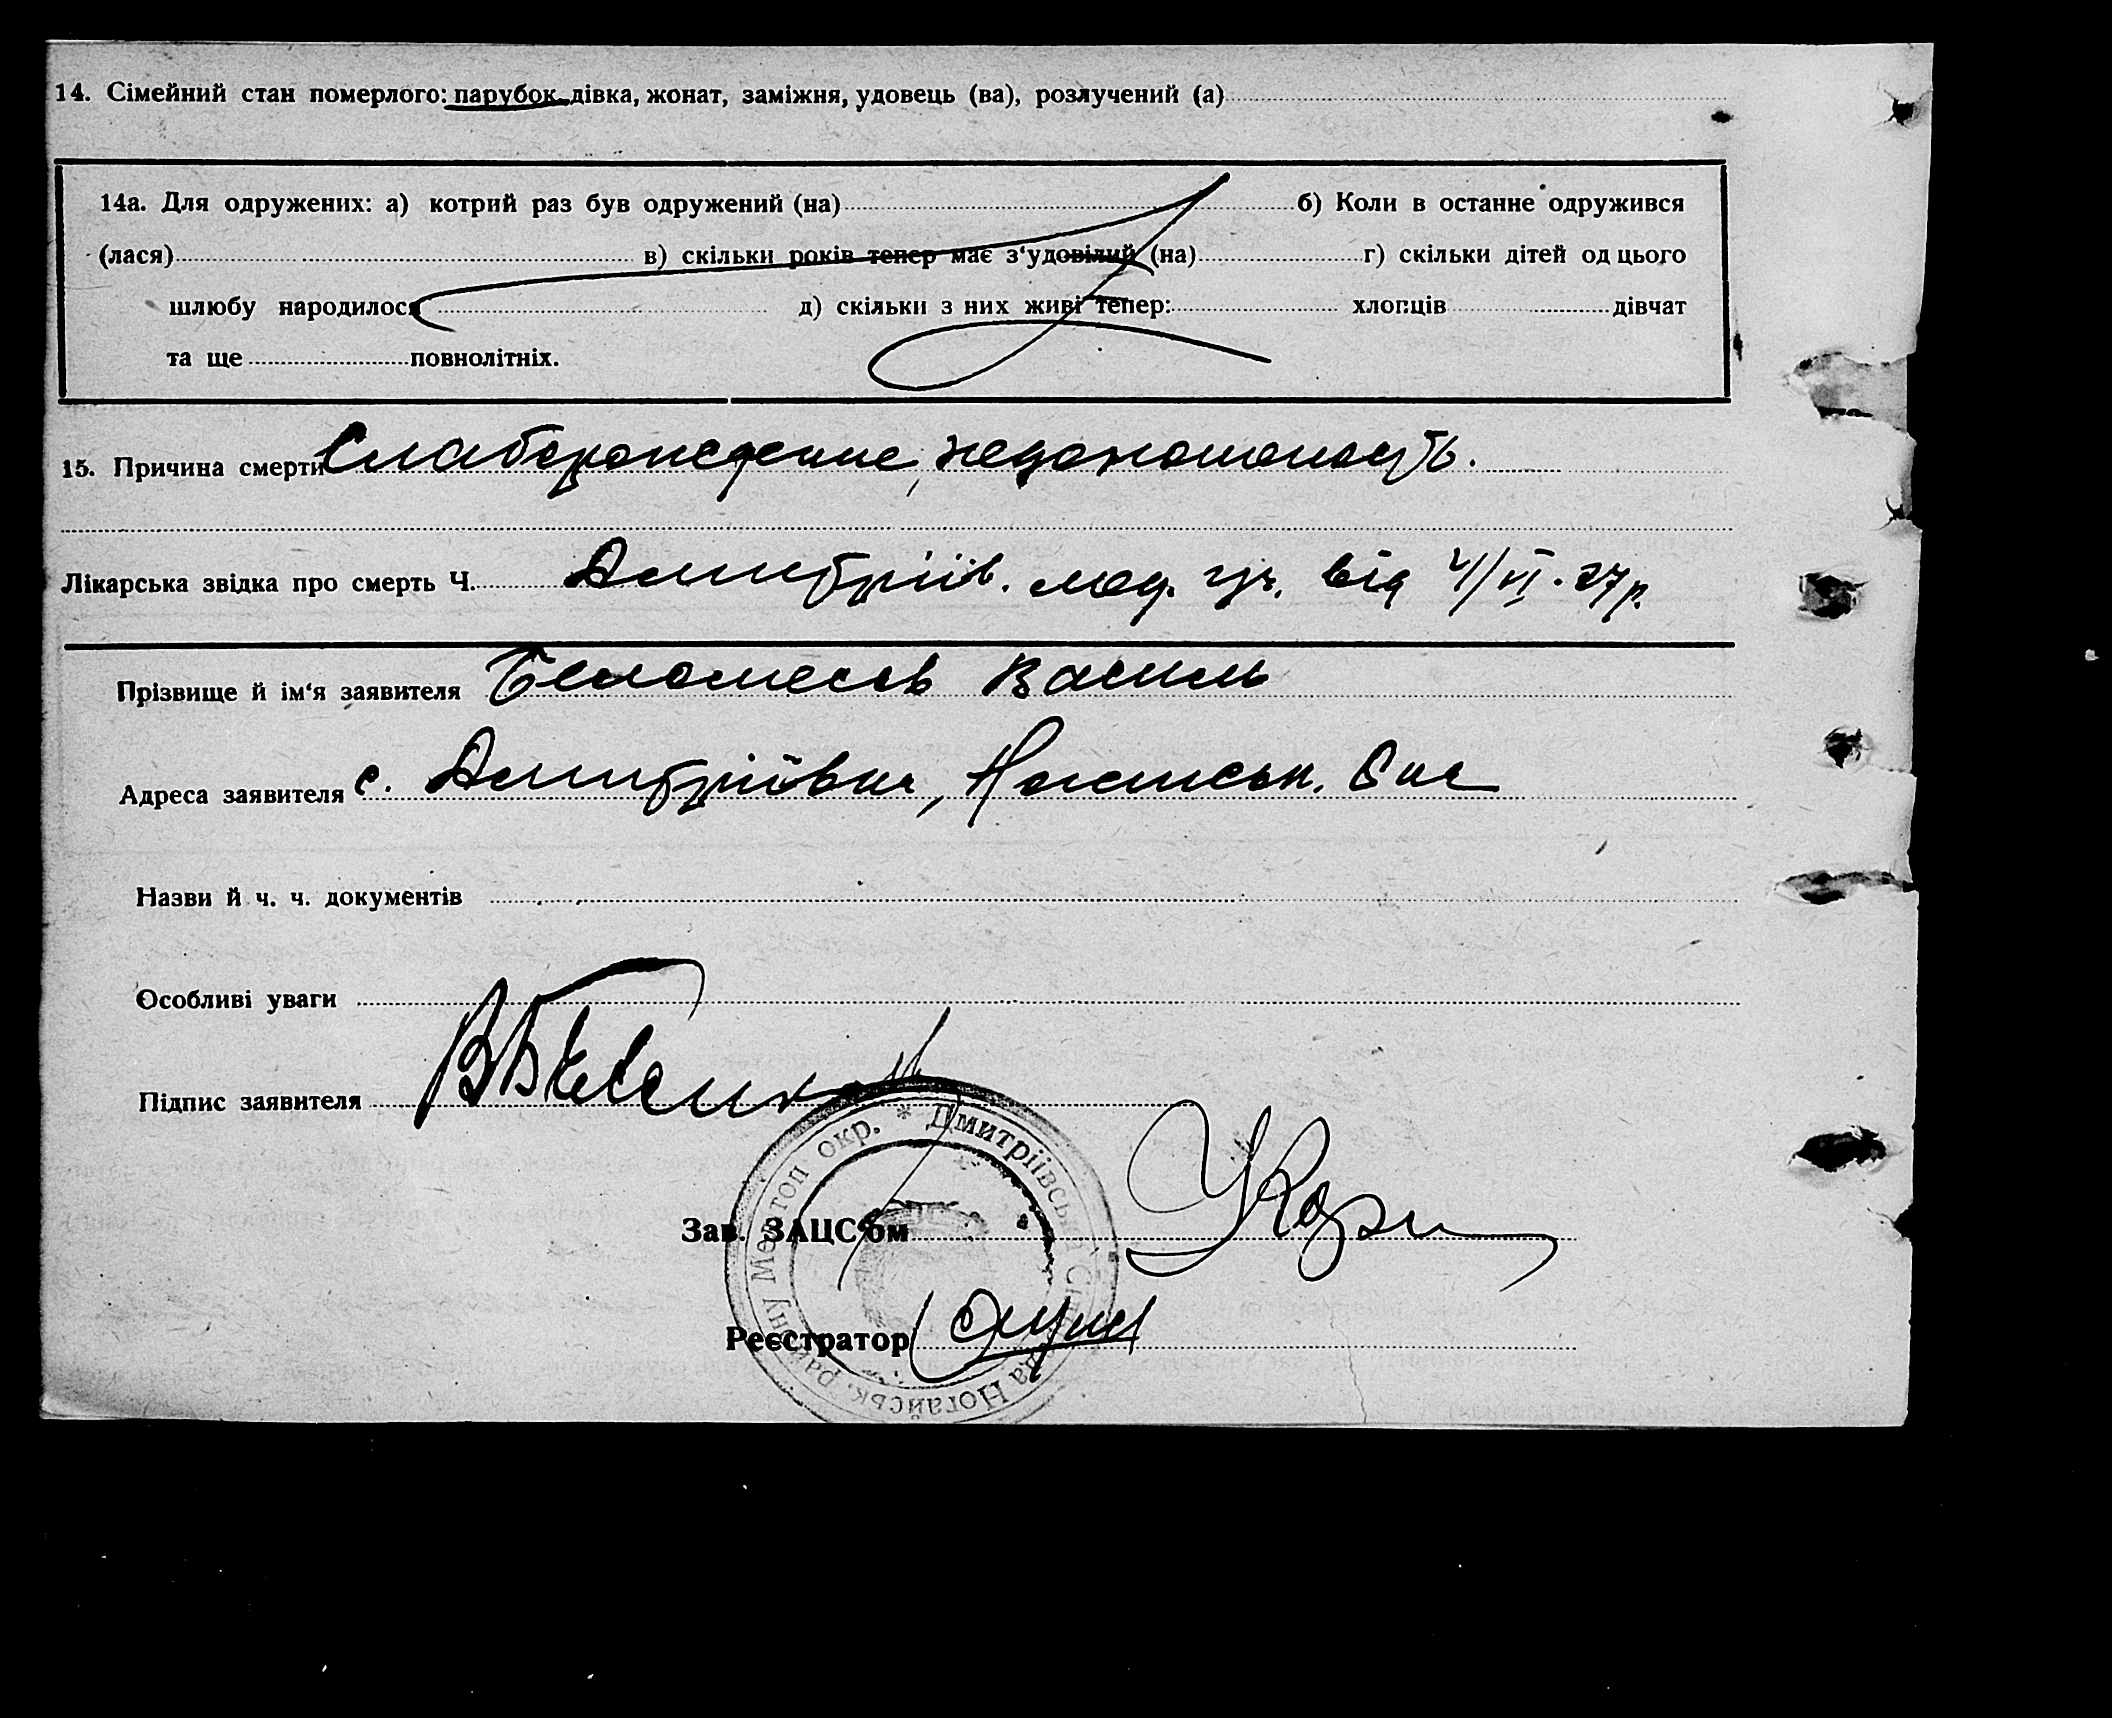 14. Сімейний стан померлого: парубок, дівка, жонат, заміжня, удовець (ва), розлучений (а)
14а. Для одружених: а) котрий раз був одружений (на) б) Коли в останнє одружився
(лася) в) скільки років тепер має з'удовілий (на) г) скільки дітей од цього
шлюбу народилося д) скільки з них живі тепер: хлопців дівчат
та ще повнолітніх.
15. Причина смерти Слаборождение, недоношеность.
Лікарська звідка про смерть Ч. Дмитріїв. мед. уч. від 4/VI. 27 р.
Прізвище й ім'я заявителя Василь
Адреса заявителя с. Дмитріївка,
Назви й ч. ч. документів
Особливі уваги
Підпис заявителя
Зав. ЗАЦС'ом
Реєстратор
* Дмитріївська Сільрада Ногайськ. району Мелітоп окр.